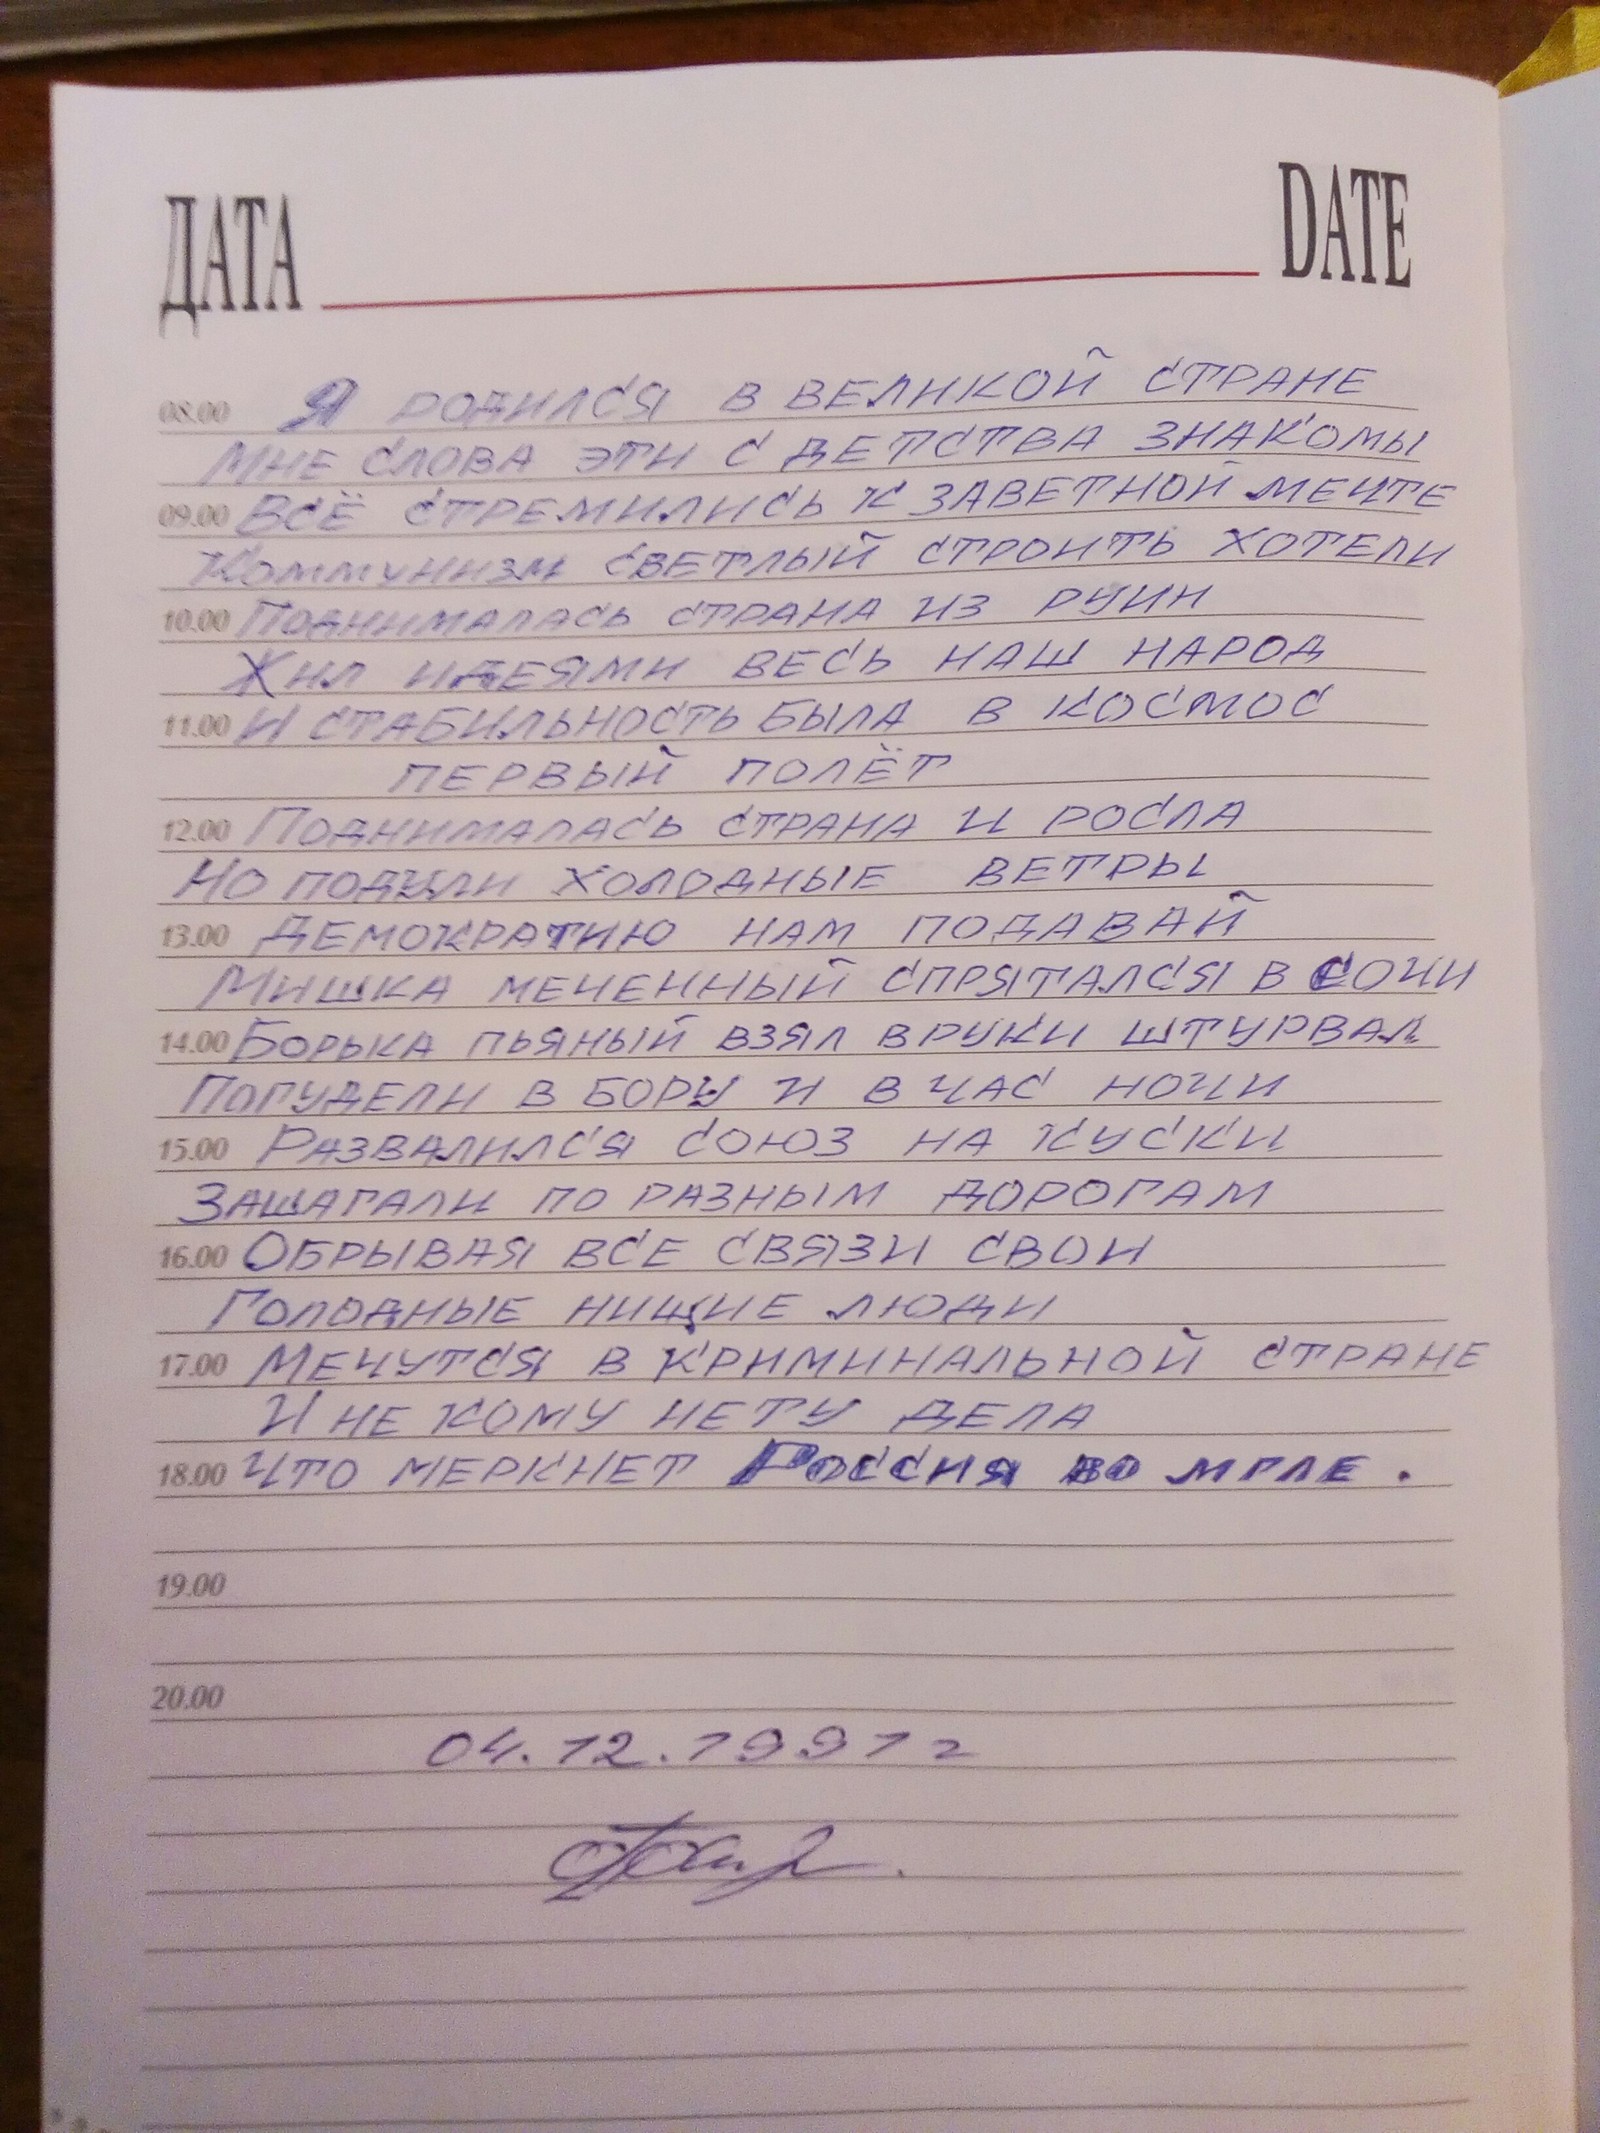 ДАТА DATE
08.00 Я РОДИЛСЯ В ВЕЛИКОЙ СТРАНЕ
МНЕ СЛОВА ЭТИ С ДЕТСТВА ЗНАКОМЫ
09.00 ВСЁ СТРЕМИЛИСЬ К ЗАВЕТНОЙ МЕЧТЕ
КОММУНИЗМ СВЕТЛЫЙ СТРОИТЬ ХОТЕЛИ
10.00 ПОДНИМАЛАСЬ СТРАНА ИЗ РУИН
ЖИЛ ИДЕЯМИ ВЕСЬ НАШ НАРОД
11.00 И СТАБИЛЬНОСТЬ БЫЛА В КОСМОС
ПЕРВЫЙ ПОЛЁТ
12.00 ПОДНИМАЛАСЬ СТРАНА И РОСЛА
НО ПОДУЛИ ХОЛОДНЫЕ ВЕТРЫ
13.00 ДЕМОКРАТИЮ НАМ ПОДАВАЙ
МИШКА МЕЧЕННЫЙ СПРЯТАЛСЯ В СОЧИ
14.00 БОРЬКА ПЬЯНЫЙ ВЗЯЛ В РУКИ ШТУРВАЛ
ПОГУДЕЛИ В БОРУ И В ЧАС НОЧИ
15.00 РАЗВАЛИЛСЯ СОЮЗ НА КУСКИ
ЗАШАГАЛИ ПО РАЗНЫМ ДОРОГАМ
16.00 ОБРЫВАЯ ВСЕ СВЯЗИ СВОИ
ГОЛОДНЫЕ НИЩИЕ ЛЮДИ
17.00 МЕЧУТСЯ В КРИМИНАЛЬНОЙ СТРАНЕ
И НЕ КОМУ НЕТУ ДЕЛА
18.00 ЧТО МЕРКНЕТ РОССИЯ ВО МГЛЕ.
19.00
20.00
04.12.1991 г